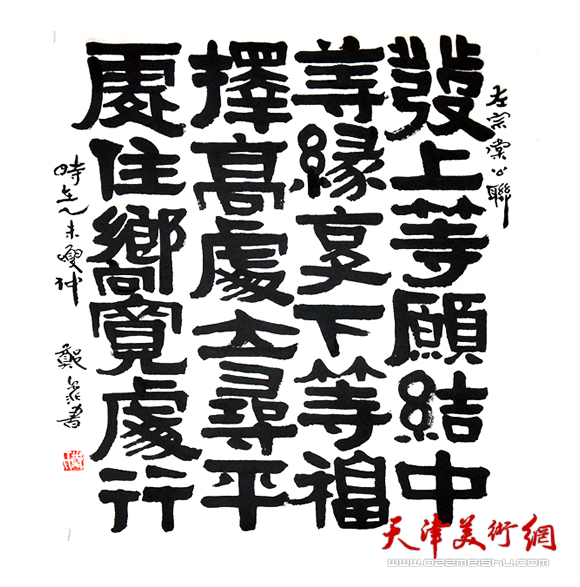 左宗棠公聯
發上等願結中
等緣享下等福
擇高處立尋平
處住嚮寬處行
時在乙未夏仲
鄭書
天津美術網
www.022meishu.com